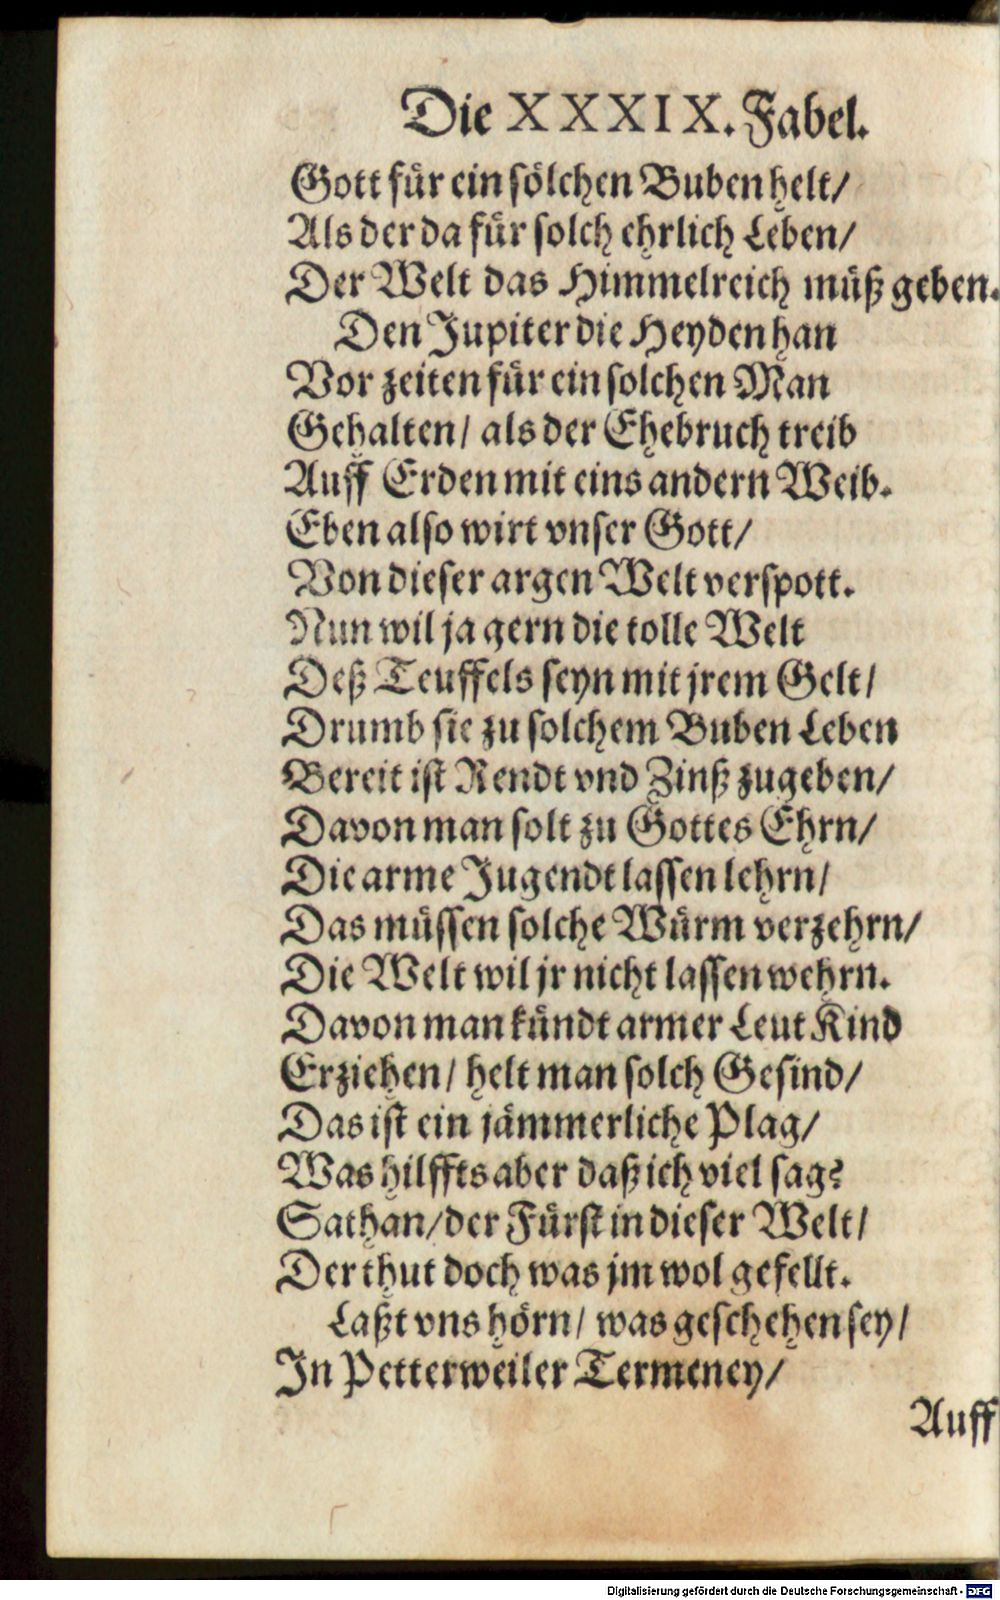 Die XXXIX. Fabel.
Gott für ein sölchen Buben helt/
Als der da für solch ehrlich Leben/
Der Welt das Himmelreich müß geben.
Den Jupiter die Heyden han
Vor zeiten für ein solchen Man
Gehalten/ als der Ehebruch treib
Auff Erden mit eins andern Weib.
Eben also wirt vnser Gott/
Von dieser argen Welt verspott.
Nun wil ja gern die tolle Welt
Deß Teuffels seyn mit jrem Gelt/
Drumb sie zu solchem Buben Leben
Bereit ist Rendt vnd Zinß zugeben/
Davon man solt zu Gottes Ehrn/
Die arme Jugendt lassen lehrn/
Das müssen solche Würm verzehrn/
Die Welt wil jr nicht lassen wehrn.
Davon man kündt armer Leut Kind
Erziehen/ helt man solch Gesind/
Das ist ein jämmerliche Plag/
Was hilffts aber daß ich viel sag?
Sathan/ der Fürst in dieser Welt/
Der thut doch was jm wol gefellt.
Laßt vns hörn/ was geschehen sey/
In Petterweiler Termeney/
Auff
Digitalisierung gefördert durch die Deutsche Forschungsgemeinschaft - DFG